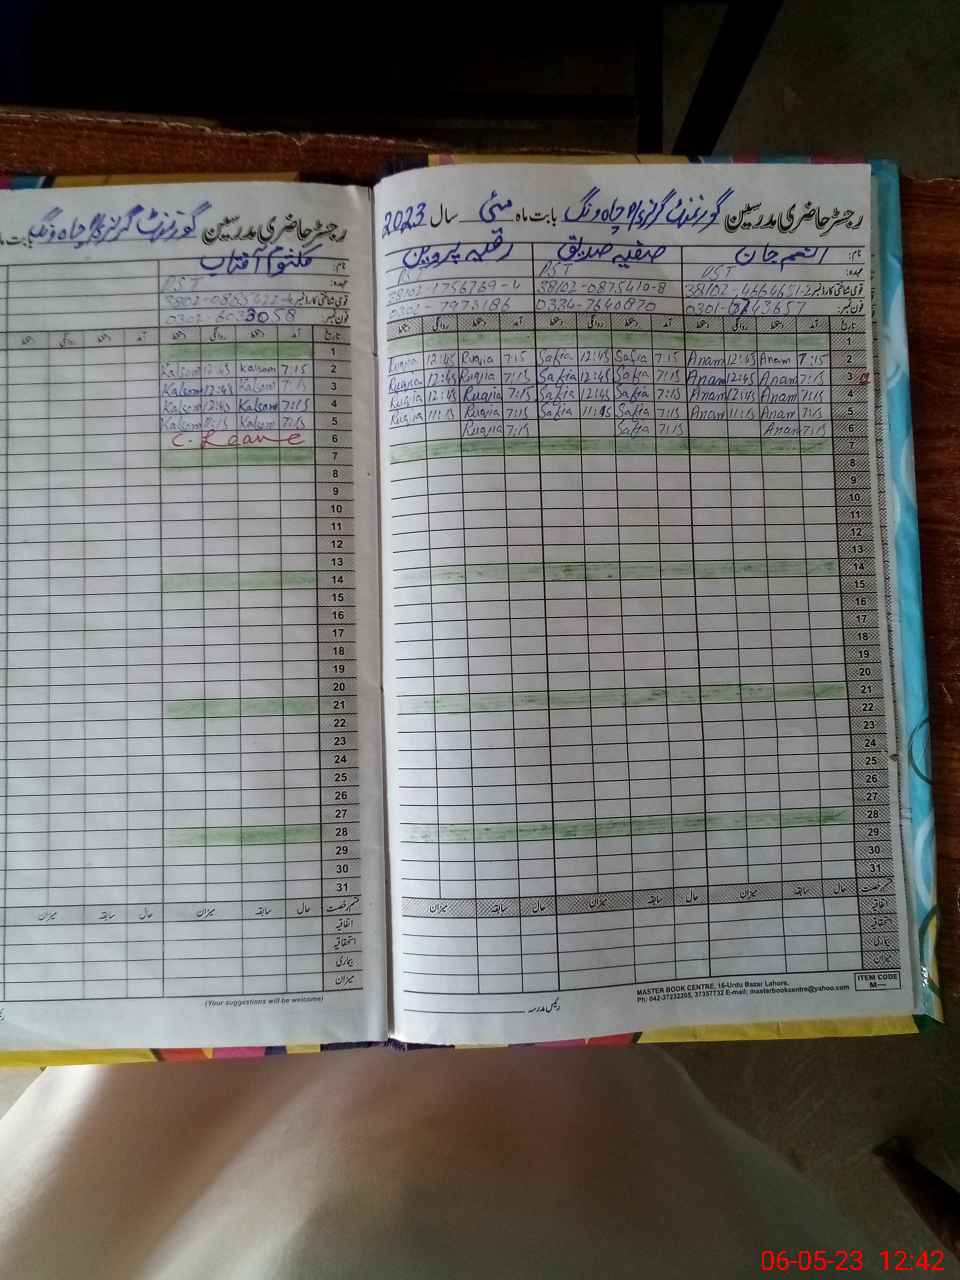 رجسٹر حاضری مدرسین گورنمنٹ گرلز چاہ ونگ بابت ماہ مئی سال 2023
نام: انعم جان صفیہ صدیق رقیہ پروین
عہدہ: PST PST
قومی شناختی کارڈ نمبر 38102-4664651-2 38102-0875410-8 38102-1756769-4
فون نمبر: 0334-7640870 0302-7973186
تاریخ آمد دستخط روانگی دستخط آمد دستخط روانگی دستخط آمد دستخط روانگی دستخط
1
2 7:15 Anam 12:45 Anam 7:15 Safia 12:45 Safia 7:15 Ruqia 12:45 Ruqia
3 7:15 Anam 12:45 Anam 7:15 Safia 12:45 Safia 7:15 Ruqia 12:45 Ruqia
4 7:15 Anam 12:45 Anam 7:15 Safia 12:45 Safia 7:15 Ruqia 12:45 Ruqia
5 7:15 Anam 11:15 Anam 7:15 Safia 11:45 Safia 7:15 Ruqia 11:15 Ruqia
6 7:15 Anam 7:15 Safia 7:15 Ruqia
7
8
9
10
11
12
13
14
15
16
17
18
19
20
21
22
23
24
25
26
27
28
29
30
31
قسم رخصت حال سابقہ میزان حال سابقہ میزان حال سابقہ میزان
اتفاقیہ
استحقاقیہ
بیماری
میزان
ITEM CODE
M—
MASTER BOOK CENTRE, 16-Urdu Bazar Lahore.
Ph: 042-37232205, 37357732 E-mail: masterbookcentre@yahoo.com
رئیس مدرسہ
رجسٹر حاضری مدرسین گورنمنٹ گرلز چاہ ونگ بابت ماہ
نام: کلثوم آفتاب
عہدہ: PST
قومی شناختی کارڈ نمبر
فون نمبر: 0302-6033058
تاریخ آمد دستخط روانگی دستخط آمد دستخط روانگی دستخط
1
2 7:15 Kalsom 12:45 Kalsom
3 7:15 Kalsom 12:45 Kalsom
4 7:15 Kalsom 12:45 Kalsom
5 7:15 Kalsom Kalsom
6 C. Leave
7
8
9
10
11
12
13
14
15
16
17
18
19
20
21
22
23
24
25
26
27
28
29
30
31
قسم رخصت حال سابقہ میزان حال سابقہ میزان
اتفاقیہ
استحقاقیہ
بیماری
میزان
(Your suggestions will be welcome)
06-05-23 12:42